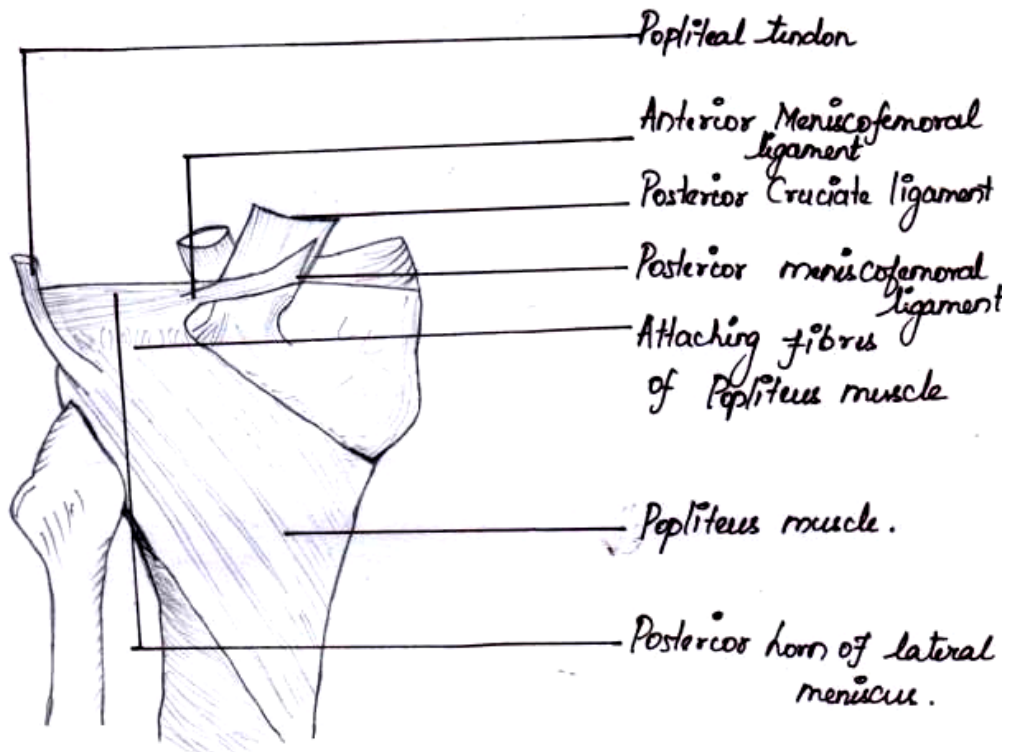 Popliteal tendon
Anterior Meniscofemoral
ligament
Posterior Cruciate ligament
Posterior meniscofemoral
ligament
Attaching fibres
of Popliteus muscle
Popliteus muscle.
Posterior horn of lateral
meniscus.